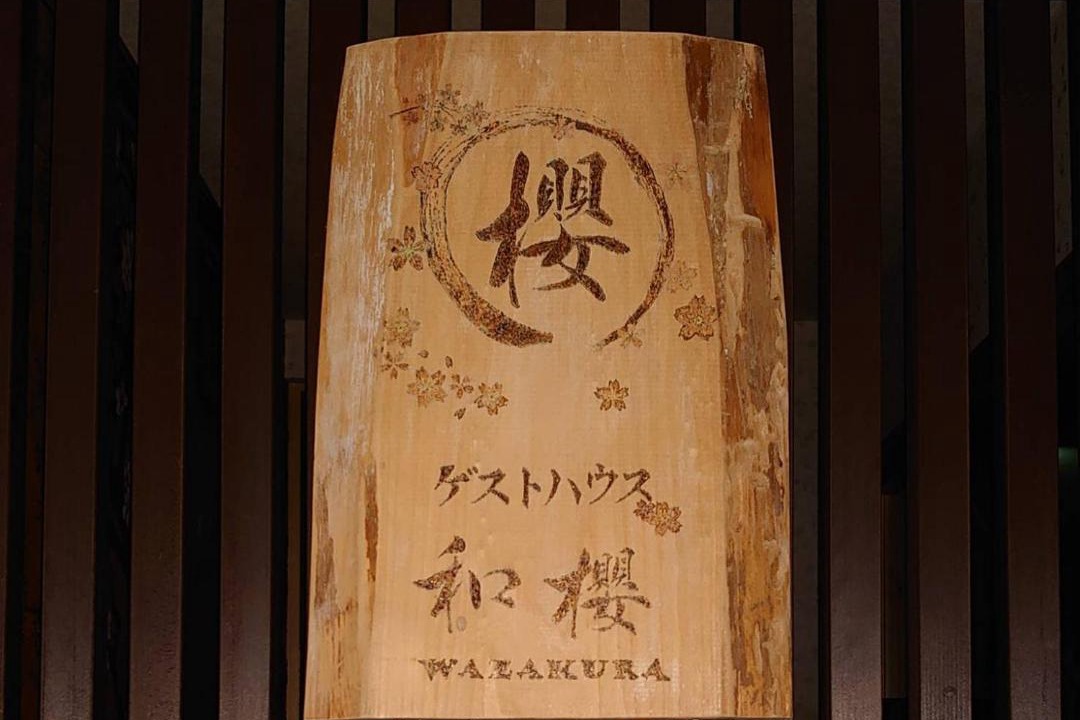 櫻
ゲストハウス
和櫻
WAZAKURA